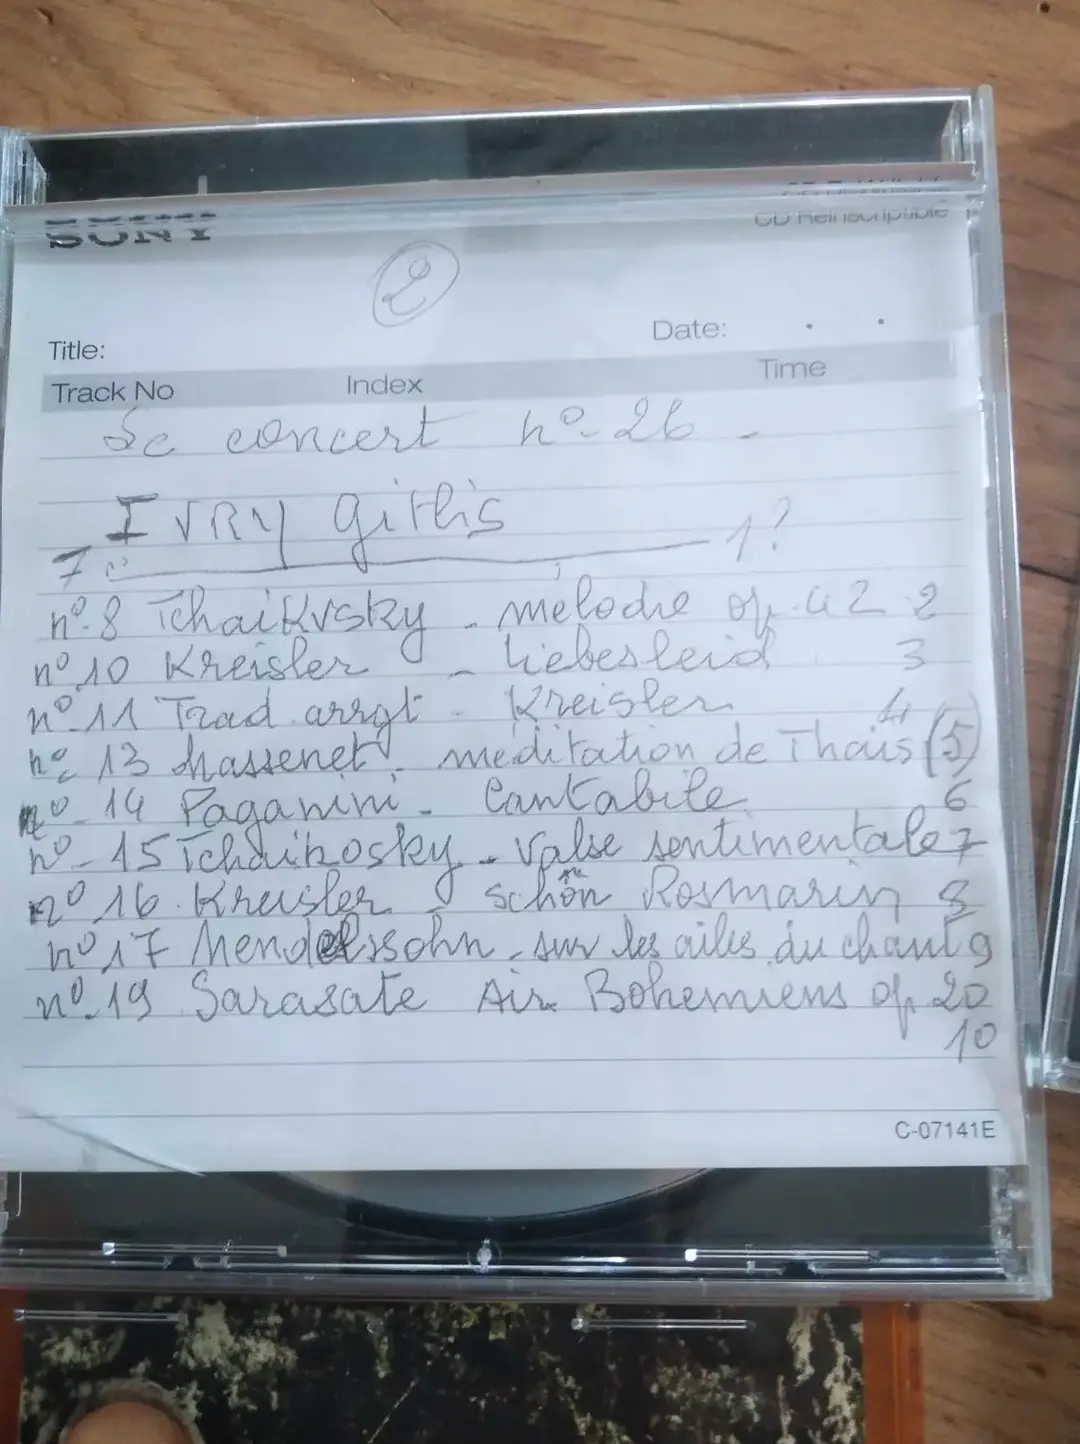 SONY
CD Réinscriptible
2
Date: . .
Title:
Track No Index Time
Le concert n°-26 -
IVRY githis
7 1?
n°-8 TchaiKvsky - mélodie op. 42 2
n° 10 Kreisler - Liebesleid 3
n° 11 Trad arrgt - Kreisler 4
n° 13 Massenet. méditation de Thaïs (5)
n°- 14 Paganini - Cantabile 6
n°- 15 Tchaikosky - valse sentimentale 7
n° 16. Kreisler - schön Rosmarin 8
n° 17 Mendelssohn - sur les ailes du chant 9
n°-19 Sarasate Air Bohemiens op 20
10
C-07141E